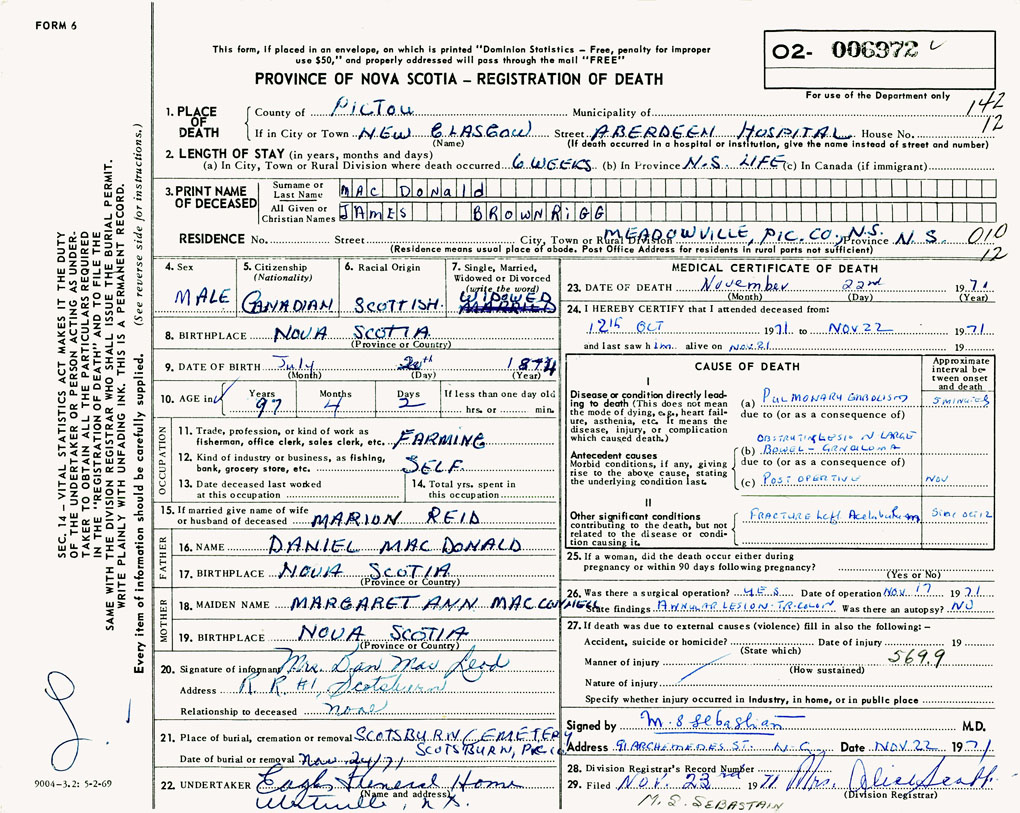 FORM 6
This form, if placed in an envelope, on which is printed "Dominion Statistics – Free, penalty for improper
use $50," and properly addressed will pass through the mail "FREE"
PROVINCE OF NOVA SCOTIA – REGISTRATION OF DEATH
02- 006972
For use of the Department only
142
12
1. PLACE OF DEATH
County of PICTOU Municipality of
If in City or Town NEW GLASGOW Street ABERDEEN HOSPITAL House No.
(Name) (If death occurred in a hospital or institution, give the name instead of street and number)
2. LENGTH OF STAY (in years, months and days)
(a) In City, Town or Rural Division where death occurred 6 WEEKS (b) In Province N.S. LIFE (c) In Canada (if immigrant)
3. PRINT NAME OF DECEASED
Surname or Last Name MAC DONALD
All Given or Christian Names JAMES BROWNRIGG
RESIDENCE No. Street City, Town or Rural Division MEADOWVILLE, PIC. CO., N.S. Province N.S. 010
(Residence means usual place of abode. Post Office Address for residents in rural parts not sufficient) 12
4. Sex MALE
5. Citizenship (Nationality) CANADIAN
6. Racial Origin SCOTTISH
7. Single, Married, Widowed or Divorced (write the word) WIDOWED MARRIED
8. BIRTHPLACE NOVA SCOTIA
(Province or Country)
9. DATE OF BIRTH July 20th 1874
(Month) (Day) (Year)
10. AGE in Years 97 Months 4 Days 2 If less than one day old
hrs. or min.
OCCUPATION
11. Trade, profession, or kind of work as
fisherman, office clerk, sales clerk, etc. FARMING
12. Kind of industry or business, as fishing,
bank, grocery store, etc. SELF
13. Date deceased last worked
at this occupation
14. Total yrs. spent in
this occupation
15. If married give name of wife
or husband of deceased MARION REID
FATHER
16. NAME DANIEL MAC DONALD
17. BIRTHPLACE NOVA SCOTIA
(Province or Country)
MOTHER
18. MAIDEN NAME MARGARET ANN MAC CONNELL
19. BIRTHPLACE NOVA SCOTIA
(Province or Country)
20. Signature of informant Mrs. Dan Mac Leod
Address R.R #1, Scotsburn
Relationship to deceased none
21. Place of burial, cremation or removal SCOTSBURN CEMETERY
SCOTSBURN, PIC. CO.
Date of burial or removal Nov 24/71
22. UNDERTAKER Eagles Funeral Home
(Name and address) Westville, N.S.
MEDICAL CERTIFICATE OF DEATH
23. DATE OF DEATH November 22nd 1971
(Month) (Day) (Year)
24. I HEREBY CERTIFY that I attended deceased from:
12th OCT 1971 to NOV 22 1971
and last saw him alive on NOV. 21 19
CAUSE OF DEATH
Approximate interval between onset and death
I
Disease or condition directly leading to death (This does not mean
the mode of dying, e.g., heart failure, asthenia, etc. It means the
disease, injury, or complication which caused death.)
(a) PULMONARY EMBOLISM 5 MINUTES
due to (or as a consequence of)
OBSTRUCTING LESION LARGE
Antecedent causes
Morbid conditions, if any, giving rise to the above cause, stating the underlying condition last.
(b) BOWEL - GRANULOMA
due to (or as a consequence of)
(c) POST OPERATIVE NOV
II
Other significant conditions contributing to the death, but not related to the disease or condition causing it.
FRACTURE Left Acetabulum Since Oct 12
25. If a woman, did the death occur either during
pregnancy or within 90 days following pregnancy?
(Yes or No)
26. Was there a surgical operation? YES Date of operation NOV. 17 1971
State findings ANNULAR LESION Was there an autopsy? NO
27. If death was due to external causes (violence) fill in also the following: –
Accident, suicide or homicide? Date of injury 19
(State which)
569.9
Manner of injury
(How sustained)
Nature of injury
Specify whether injury occurred in Industry, in home, or in public place
Signed by M. S. Sebastian M.D.
Address 91 ARCHEMEDES ST. N.G. Date NOV 22 1971
28. Division Registrar's Record Number
29. Filed NOV. 23rd 1971 Mrs. Alice Scott
(Division Registrar)
M. S. SEBASTAIN
SEC. 14 – VITAL STATISTICS ACT MAKES IT THE DUTY
OF THE UNDERTAKER OR PERSON ACTING AS UNDER-
TAKER TO OBTAIN ALL THE PARTICULARS REQUIRED
IN THE "REGISTRATION OF DEATH" AND TO FILE THE
SAME WITH THE DIVISION REGISTRAR WHO SHALL ISSUE THE BURIAL PERMIT.
WRITE PLAINLY WITH UNFADING INK. THIS IS A PERMANENT RECORD.
Every item of information should be carefully supplied. (See reverse side for instructions.)
9004-3.2: 5-2-69